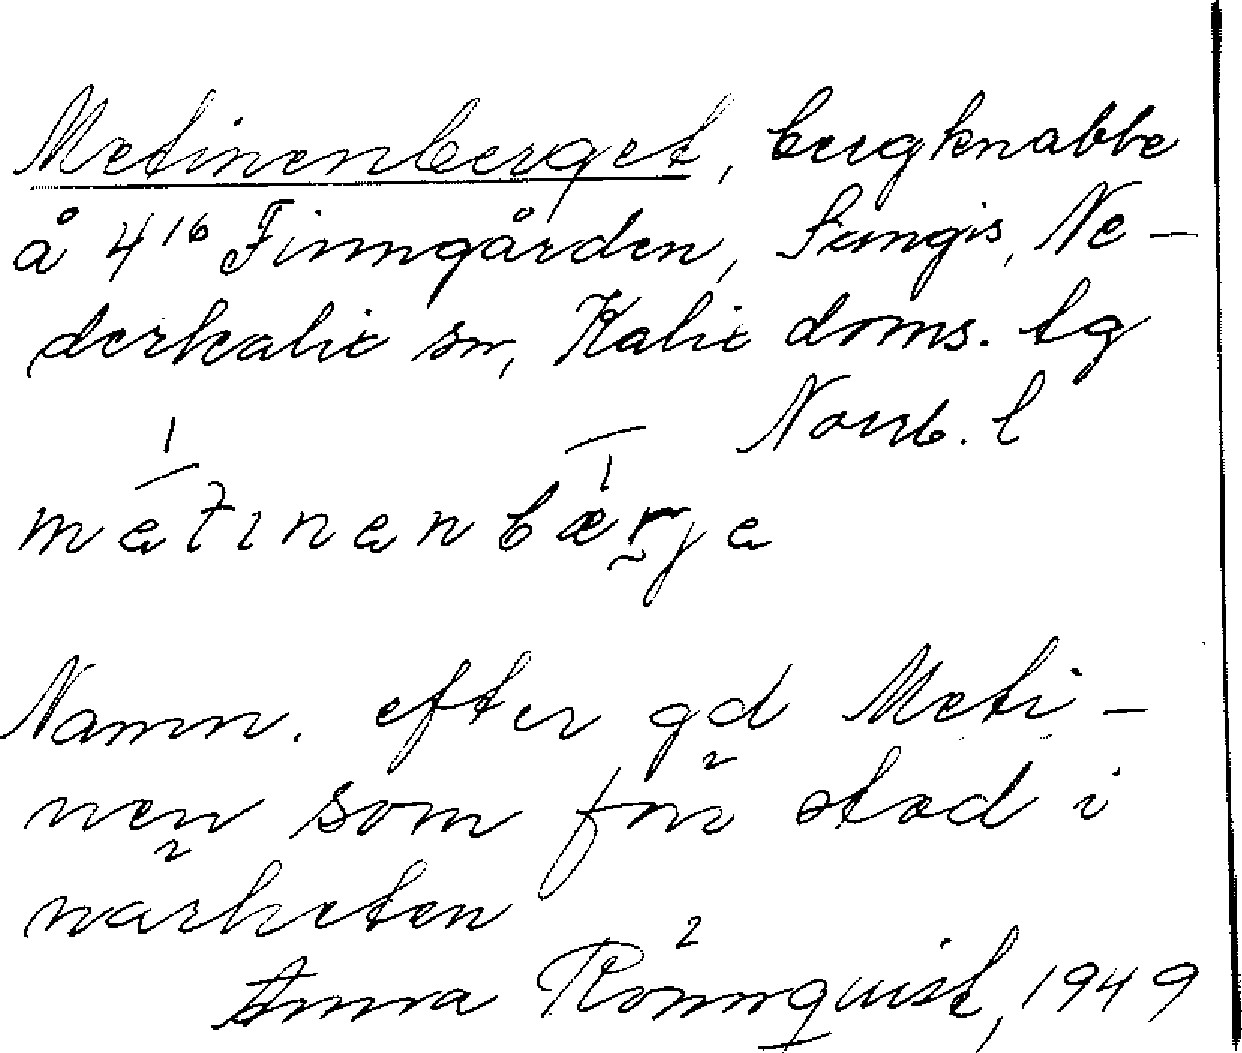 Metinenberget, bergknabbe
å 4¹⁶ Finngården, Sangis, Ne-
derkalix sn, Kalix doms. tg
Norrb. l
metinenbærje
Namn. efter gd Meti-
nen som förr stod i
närheten
Anna Rönnquist, 1949